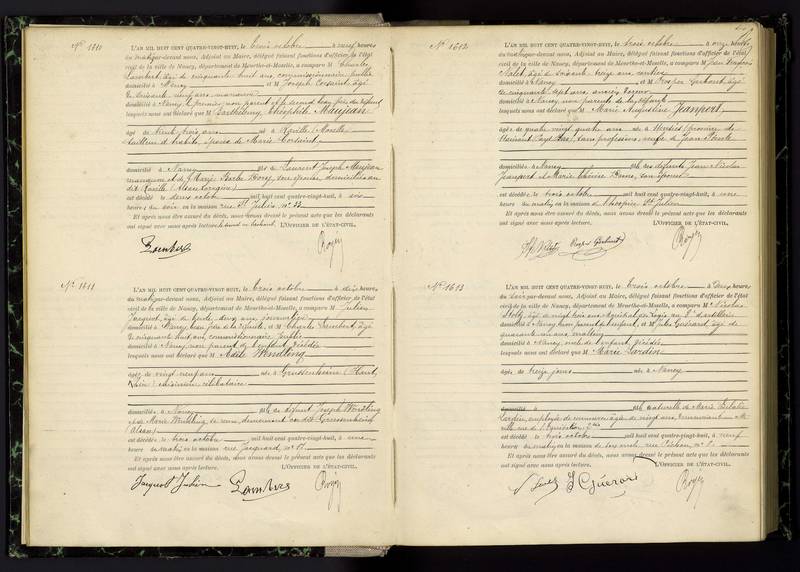 No 1610
L'AN MIL HUIT CENT QUATRE-VINGT-HUIT, le trois octobre à neuf heures
du matin par-devant nous, Adjoint au Maire, délégué faisant fonctions d'officier de l'état
civil de la ville de Nancy, département de Meurthe-et-Moselle, a comparu M Charles
Lambert, âgé de cinquante huit ans, commissionnaire public
domicilié à Nancy et M Joseph Corsaint, âgé
de soixante neuf ans, manœuvre
domicilié à Nancy, le premier non parent et le second beau père du défunt
lesquels nous ont déclaré que M Barthélemy Théophile Maujean
âgé de trente trois ans né à Raville (Moselle)
tailleur d'habits, époux de Marie Corsaint
domicilié à Nancy fils de Laurent Joseph Maujean
manœuvre et de Marie son épouse domiciliés au
dit Raville (Alsace Lorraine)
est décédé le deux octobre mil huit cent quatre-vingt-huit, à six
heures du soir en la maison rue St Julien, no 33
Et après nous être assuré du décès, nous avons dressé le présent acte que les déclarants
ont signé avec nous après lecture. L'OFFICIER DE L'ÉTAT-CIVIL,
No 1611
L'AN MIL HUIT CENT QUATRE-VINGT-HUIT, le trois octobre à dix heures
du matin par-devant nous, Adjoint au Maire, délégué faisant fonctions d'officier de l'état
civil de la ville de Nancy, département de Meurthe-et-Moselle, a comparu M Julien
Jacquot, âgé de trente deux ans, sommelier
domicilié à Nancy, beau frère de la défunte, et M Charles Lambert, âgé
de cinquante huit ans, commissionnaire public
domicilié à Nancy, non parent de la décédée
lesquels nous ont déclaré que M Adèle Windling
âgée de vingt neuf ans née à Grussenheim (Haut
Rhin) cuisinière célibataire
domiciliée à Nancy fille de défunt Joseph Windling
et de Marie sa veuve, demeurant au dit Grussenheim
(Alsace)
est décédée le trois octobre mil huit cent quatre-vingt-huit, à une
heure du matin en la maison rue Jacquard, no 17
Et après nous être assuré du décès, nous avons dressé le présent acte que les déclarants
ont signé avec nous après lecture. L'OFFICIER DE L'ÉTAT-CIVIL,
Jacquot Julien
No 1612
L'AN MIL HUIT CENT QUATRE-VINGT-HUIT, le trois octobre à onze heures
du matin par-devant nous, Adjoint au Maire, délégué faisant fonctions d'officier de l'état
civil de la ville de Nancy, département de Meurthe-et-Moselle, a comparu M Jean François
âgé de soixante treize ans, rentier
domicilié à Nancy et M Prosper Gerbaut, âgé
de cinquante sept ans, ancien
domicilié à Nancy, non parents de la défunte
lesquels nous ont déclaré que M Marie Augustine Jeanpert
âgée de quatre vingt quatre ans née à (province de
Hainaut Pays Bas), sans profession, veuve de Jean
domiciliée à Nancy fille des défunts Jean Nicolas
Jeanpert et Marie Thérèse son épouse
est décédée le trois octobre mil huit cent quatre-vingt-huit, à une
heure du matin en la maison de l'hospice St Julien
Et après nous être assuré du décès, nous avons dressé le présent acte que les déclarants
ont signé avec nous après lecture. L'OFFICIER DE L'ÉTAT-CIVIL,
No 1613
L'AN MIL HUIT CENT QUATRE-VINGT-HUIT, le trois octobre à deux heures
du soir par-devant nous, Adjoint au Maire, délégué faisant fonctions d'officier de l'état
civil de la ville de Nancy, département de Meurthe-et-Moselle, a comparu M Nicolas
âgé de vingt trois ans, maréchal des logis au 8e d'artillerie
domicilié à Nancy, non parent de l'enfant, et M Jules Guérard, âgé de
quarante six ans
domicilié à Nancy, oncle de l'enfant décédée
lesquels nous ont déclaré que M Marie Lardin
âgée de treize jours née à Nancy
domiciliée à fille naturelle de Marie
Lardin, employée de commerce, âgée de vingt ans, demeurant en cette
ville rue de l'Equitation, 2 bis
est décédée le trois octobre mil huit cent quatre-vingt-huit, à neuf
heures du matin en la maison rue
Et après nous être assuré du décès, nous avons dressé le présent acte que les déclarants
ont signé avec nous après lecture. L'OFFICIER DE L'ÉTAT-CIVIL,
J Guérard